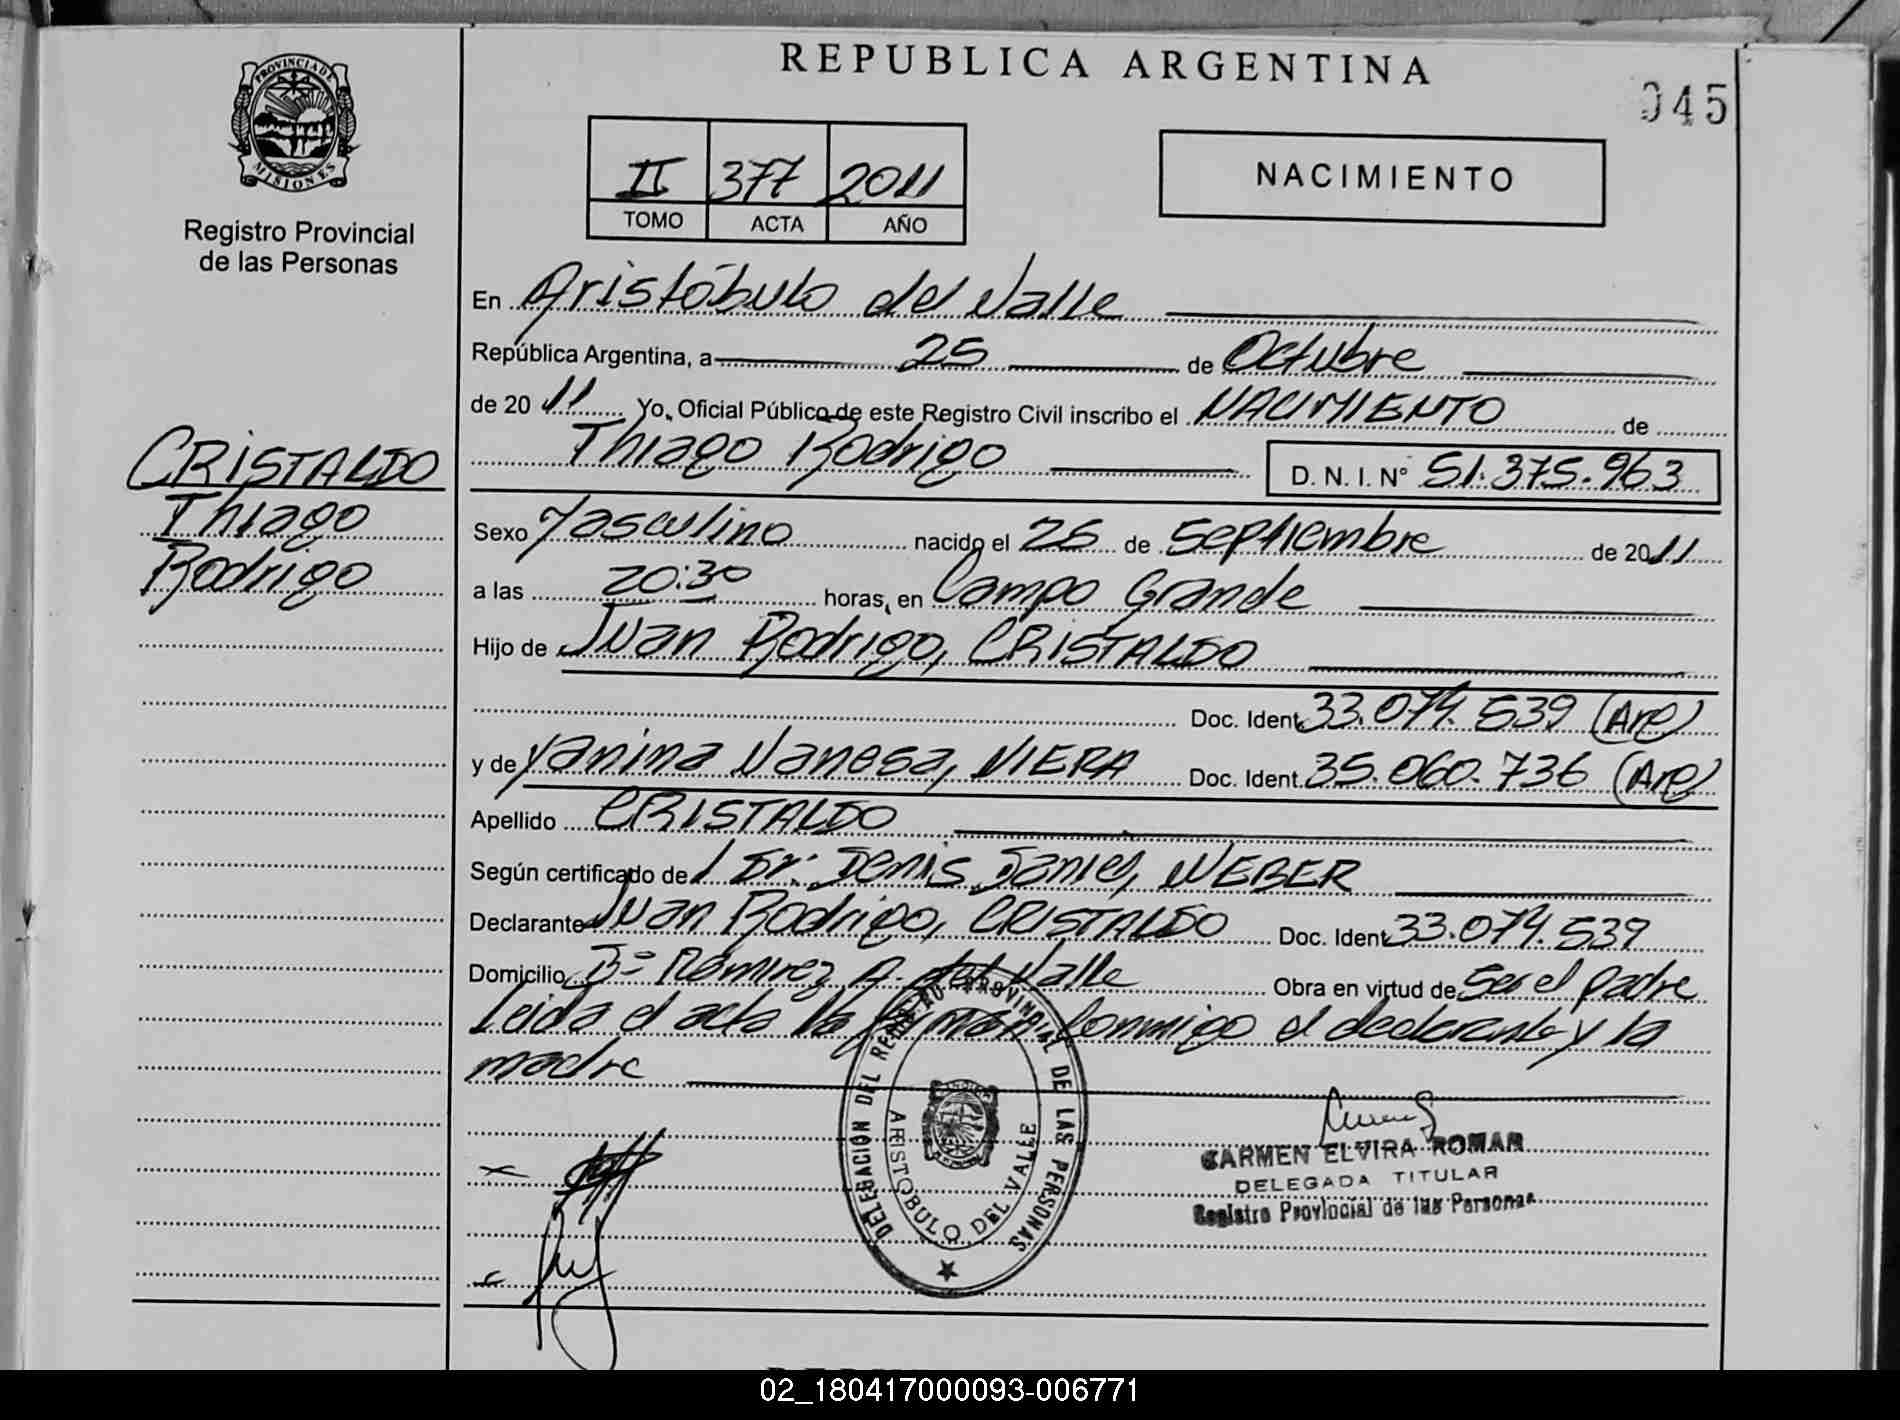 REPUBLICA ARGENTINA
045
PROVINCIA DE
MISIONES
Registro Provincial
de las Personas
II 377 2011
TOMO ACTA AÑO
NACIMIENTO
CRISTALDO
Thiago
Rodrigo
En Aristóbulo del Valle
República Argentina, a 25 de Octubre
de 2011 Yo, Oficial Público de este Registro Civil inscribo el NACIMIENTO de
Thiago Rodrigo D. N. I. Nº 51.375.963
Sexo Masculino nacido el 26 de Septiembre de 2011
a las 20:30 horas, en Campo Grande
Hijo de Juan Rodrigo, CRISTALDO
Doc. Ident. 33.074.539 (Arg)
y de Yanina Vanesa, VIERA Doc. Ident. 35.060.736 (Arg)
Apellido CRISTALDO
Según certificado de / Dr. Denis Daniel, WEBER
Declarante Juan Rodrigo, CRISTALDO Doc. Ident. 33.074.539
Domicilio Bº Ramirez A. del Valle Obra en virtud de Ser el padre
Leida el acta la firman conmigo el declarante y la
madre
DELEGACIÓN DEL REGISTRO PROVINCIAL DE LAS PERSONAS
ARISTOBULO DEL VALLE
CARMEN ELVIRA ROMAN
DELEGADA TITULAR
Registro Provincial de las Personas
02_180417000093-006771